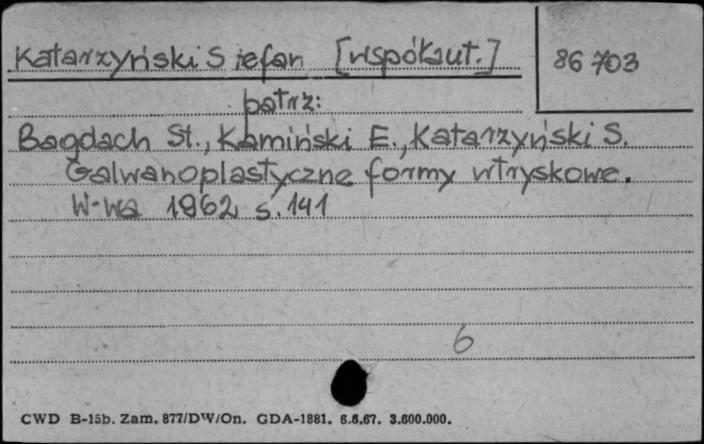 Katarzyński Stefan [współaut.]
86 703
patrz:
Bagdach St., Kamiński E., Katarzyński S.
Galwanoplastyczne formy wtryskowe.
W-wa 1962 s. 141
6
CWD B-15b. Zam. 877/DW/On. GDA-1881. 6.6.67. 3.600.000.